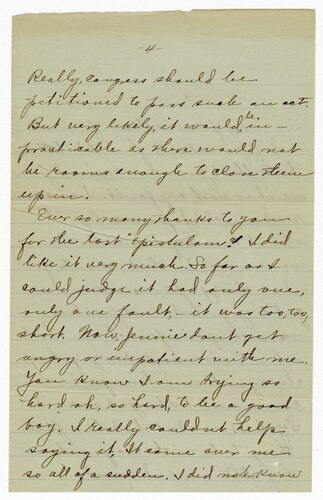 -4-
Really, congress should be
petitioned to pass such an act.
But very likely it would be im-
practicable as there would not
be rooms enough to close them
up in.
Ever so many thanks to you
for the last "Epistulam" & I did
like it very much. So far as I
could judge it had only one,
only one fault, - it was too, too,
short. Now Jennie dont get
angry or impatient with me.
You know I am trying so
hard oh, so hard, to be a good
boy. I really couldnt help
saying it, It come over me
so all of a sudden. I did not know